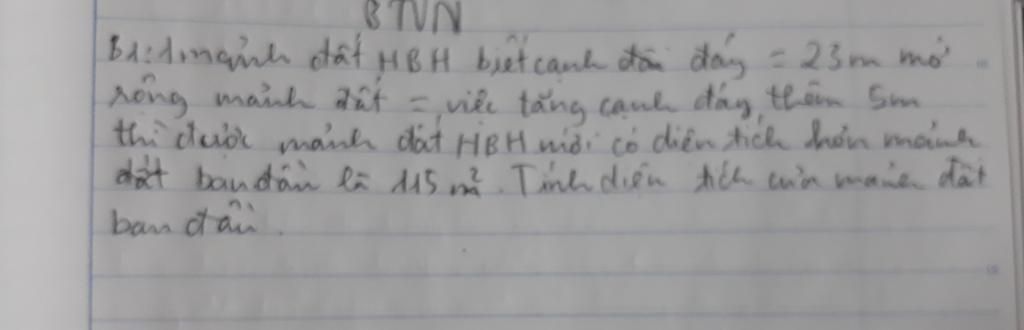 BTVN
B1: 1 mảnh đất HBH biết cạnh đáy = 23m mở
rộng mảnh đất = việc tăng cạnh đáy thêm 5m
thì được mảnh đất HBH mới có diện tích hơn mảnh
đất ban đầu là 115 m². Tính diện tích của mảnh đất
ban đầu.